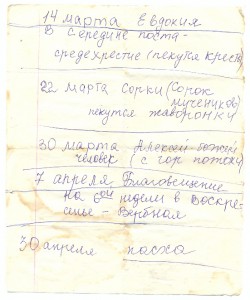 14 марта Евдокия
В середине поста -
средехрестие (пекутся кресты
22 марта Сорки (Сорок
мучеников)
пекутся жаворонки
30 марта Алексей божий
человек (с гор потоки)
7 апреля Благовещение
на 6ой недели в воскре-
сенье - Вербная
30 апреля пасха